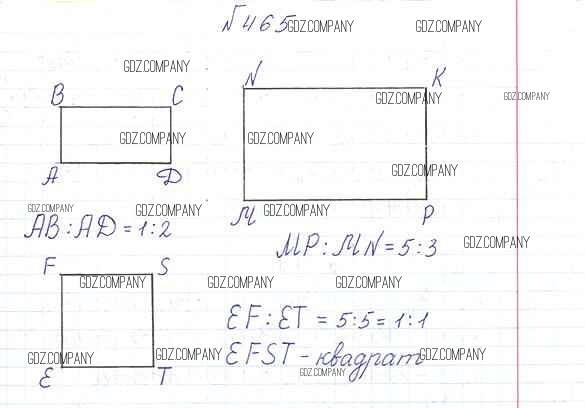 №465 GDZ.COMPANY GDZ.COMPANY
GDZ.COMPANY
N K
B C GDZ.COMPANY GDZ.COMPANY
GDZ.COMPANY GDZ.COMPANY
A D GDZ.COMPANY
GDZ.COMPANY GDZ.COMPANY M GDZ.COMPANY P
AB:AD=1:2
MP:MN=5:3 GDZ.COMPANY
F S
GDZ.COMPANY GDZ.COMPANY GDZ.COMPANY
EF:ET=5:5=1:1
GDZ.COMPANY GDZ.COMPANY EFST-квадрат GDZ.COMPANY
E T GDZ.COMPANY